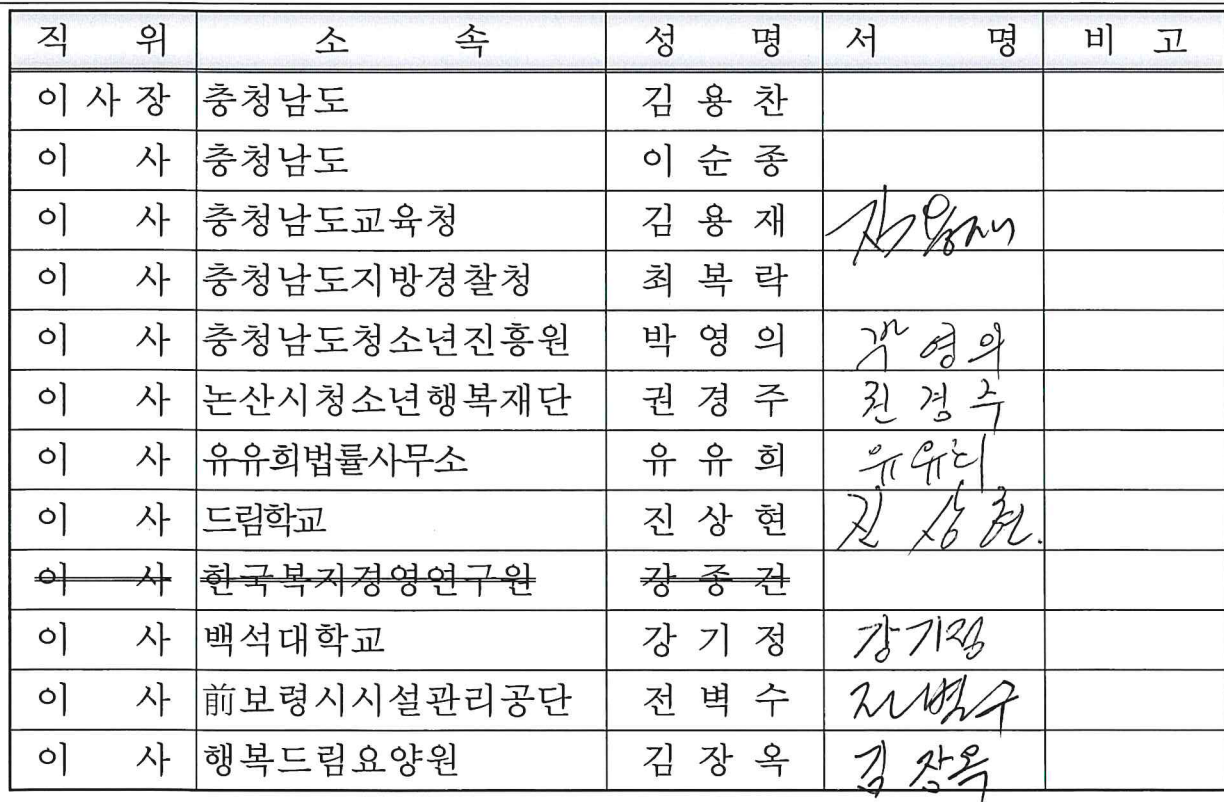 직 위 소 속 성 명 서 명 비 고
이 사 장 충청남도 김 용 찬
이 사 충청남도 이 순 종
이 사 충청남도교육청 김 용 재 김용재
이 사 충청남도지방경찰청 최 복 락
이 사 충청남도청소년진흥원 박 영 의 박영의
이 사 논산시청소년행복재단 권 경 주 권경주
이 사 유유희법률사무소 유 유 희 유유희
이 사 드림학교 진 상 현 진상현.
이 사 한국복지경영연구원 강 종 건
이 사 백석대학교 강 기 정 강기정
이 사 前보령시시설관리공단 전 벽 수 전벽수
이 사 행복드림요양원 김 장 옥 김장옥